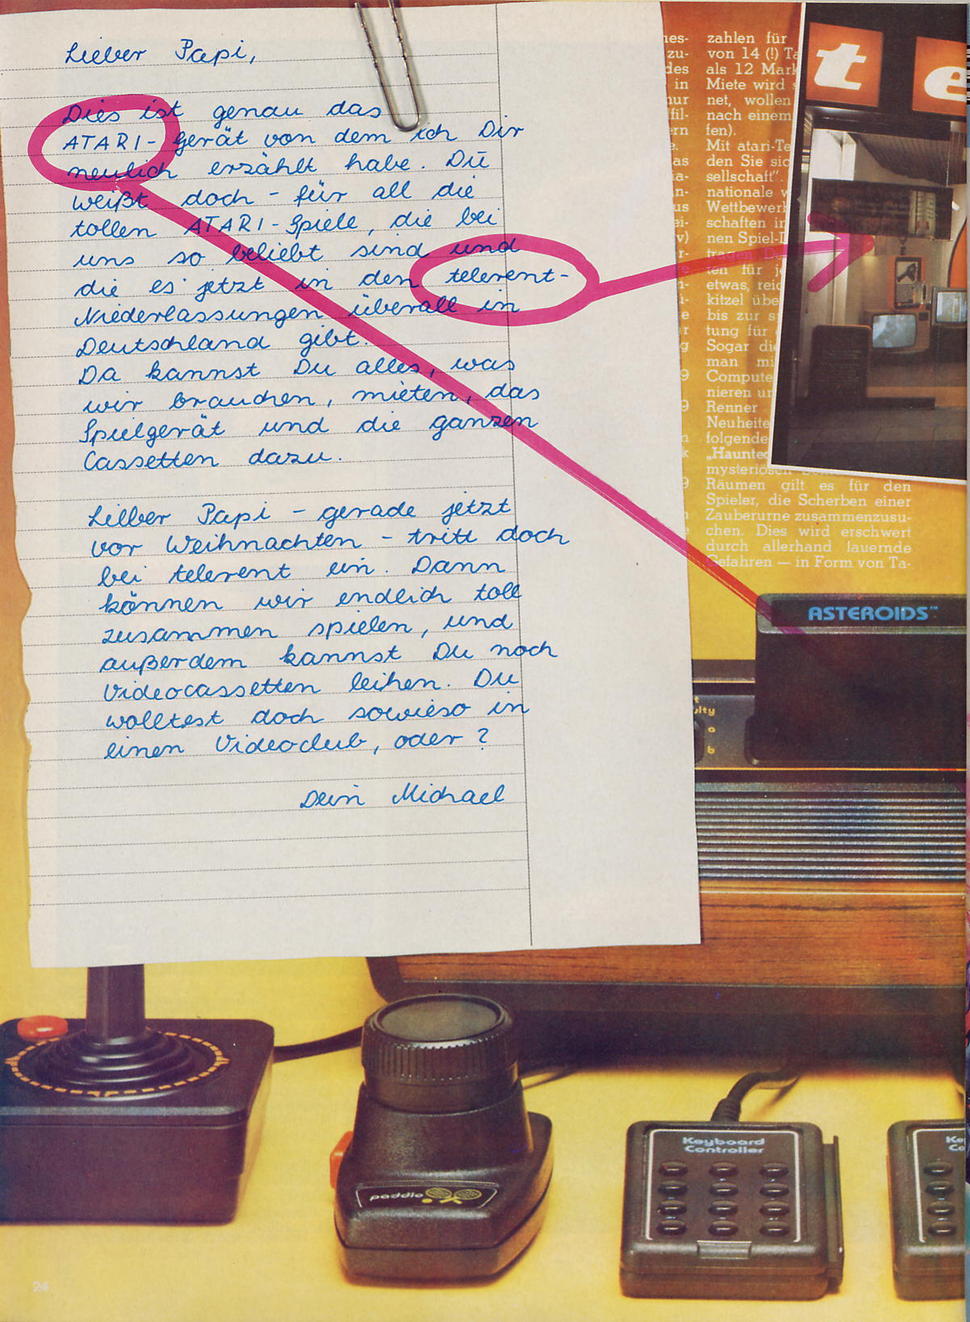 Lieber Papi,
Dies ist genau das
ATARI-Gerät von dem ich Dir
neulich erzählt habe. Du
weißt doch - für all die
tollen ATARI-Spiele, die bei
uns so beliebt sind und
die es jetzt in den telerent-
Niederlassungen überall in
Deutschland gibt.
Da kannst Du alles, was
wir brauchen, mieten, das
Spielgerät und die ganzen
Cassetten dazu.
Lieber Papi - gerade jetzt
vor Weihnachten - tritt doch
bei telerent ein. Dann
können wir endlich toll
zusammen spielen, und
außerdem kannst Du noch
Videocassetten leihen. Du
wolltest doch sowieso in
einen Videoclub, oder?
Dein Michael
zahlen für
von 14 (!) Ta
als 12 Mark
Miete wird
net, wollen
nach einem
fen).
Mit atari-Te
den Sie sic
sellschaft".
nationale w
Wettbewerb
schaften in
nen Spiel-L
ten für j
etwas, reic
kitzel übe
bis zur s
tung für
Sogar die
man mi
Compute
nieren un
Renner
Neuheite
folgende
„Haunted
mysteriös
Räumen gilt es für den
Spieler, die Scherben einer
Zauberurne zusammenzusu-
chen. Dies wird erschwert
durch allerhand lauernde
Gefahren — in Form von Ta-
te
ASTEROIDS™
lty
a
b
paddle
Keyboard
Controller
Ke
Co
24